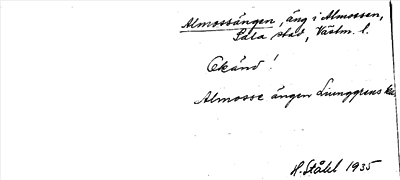 Almossängen, äng i Almossen,
Sala stad, Västm. l.
Okänd!
Almosse ängen Ljunggrens
H. Ståhl 1935